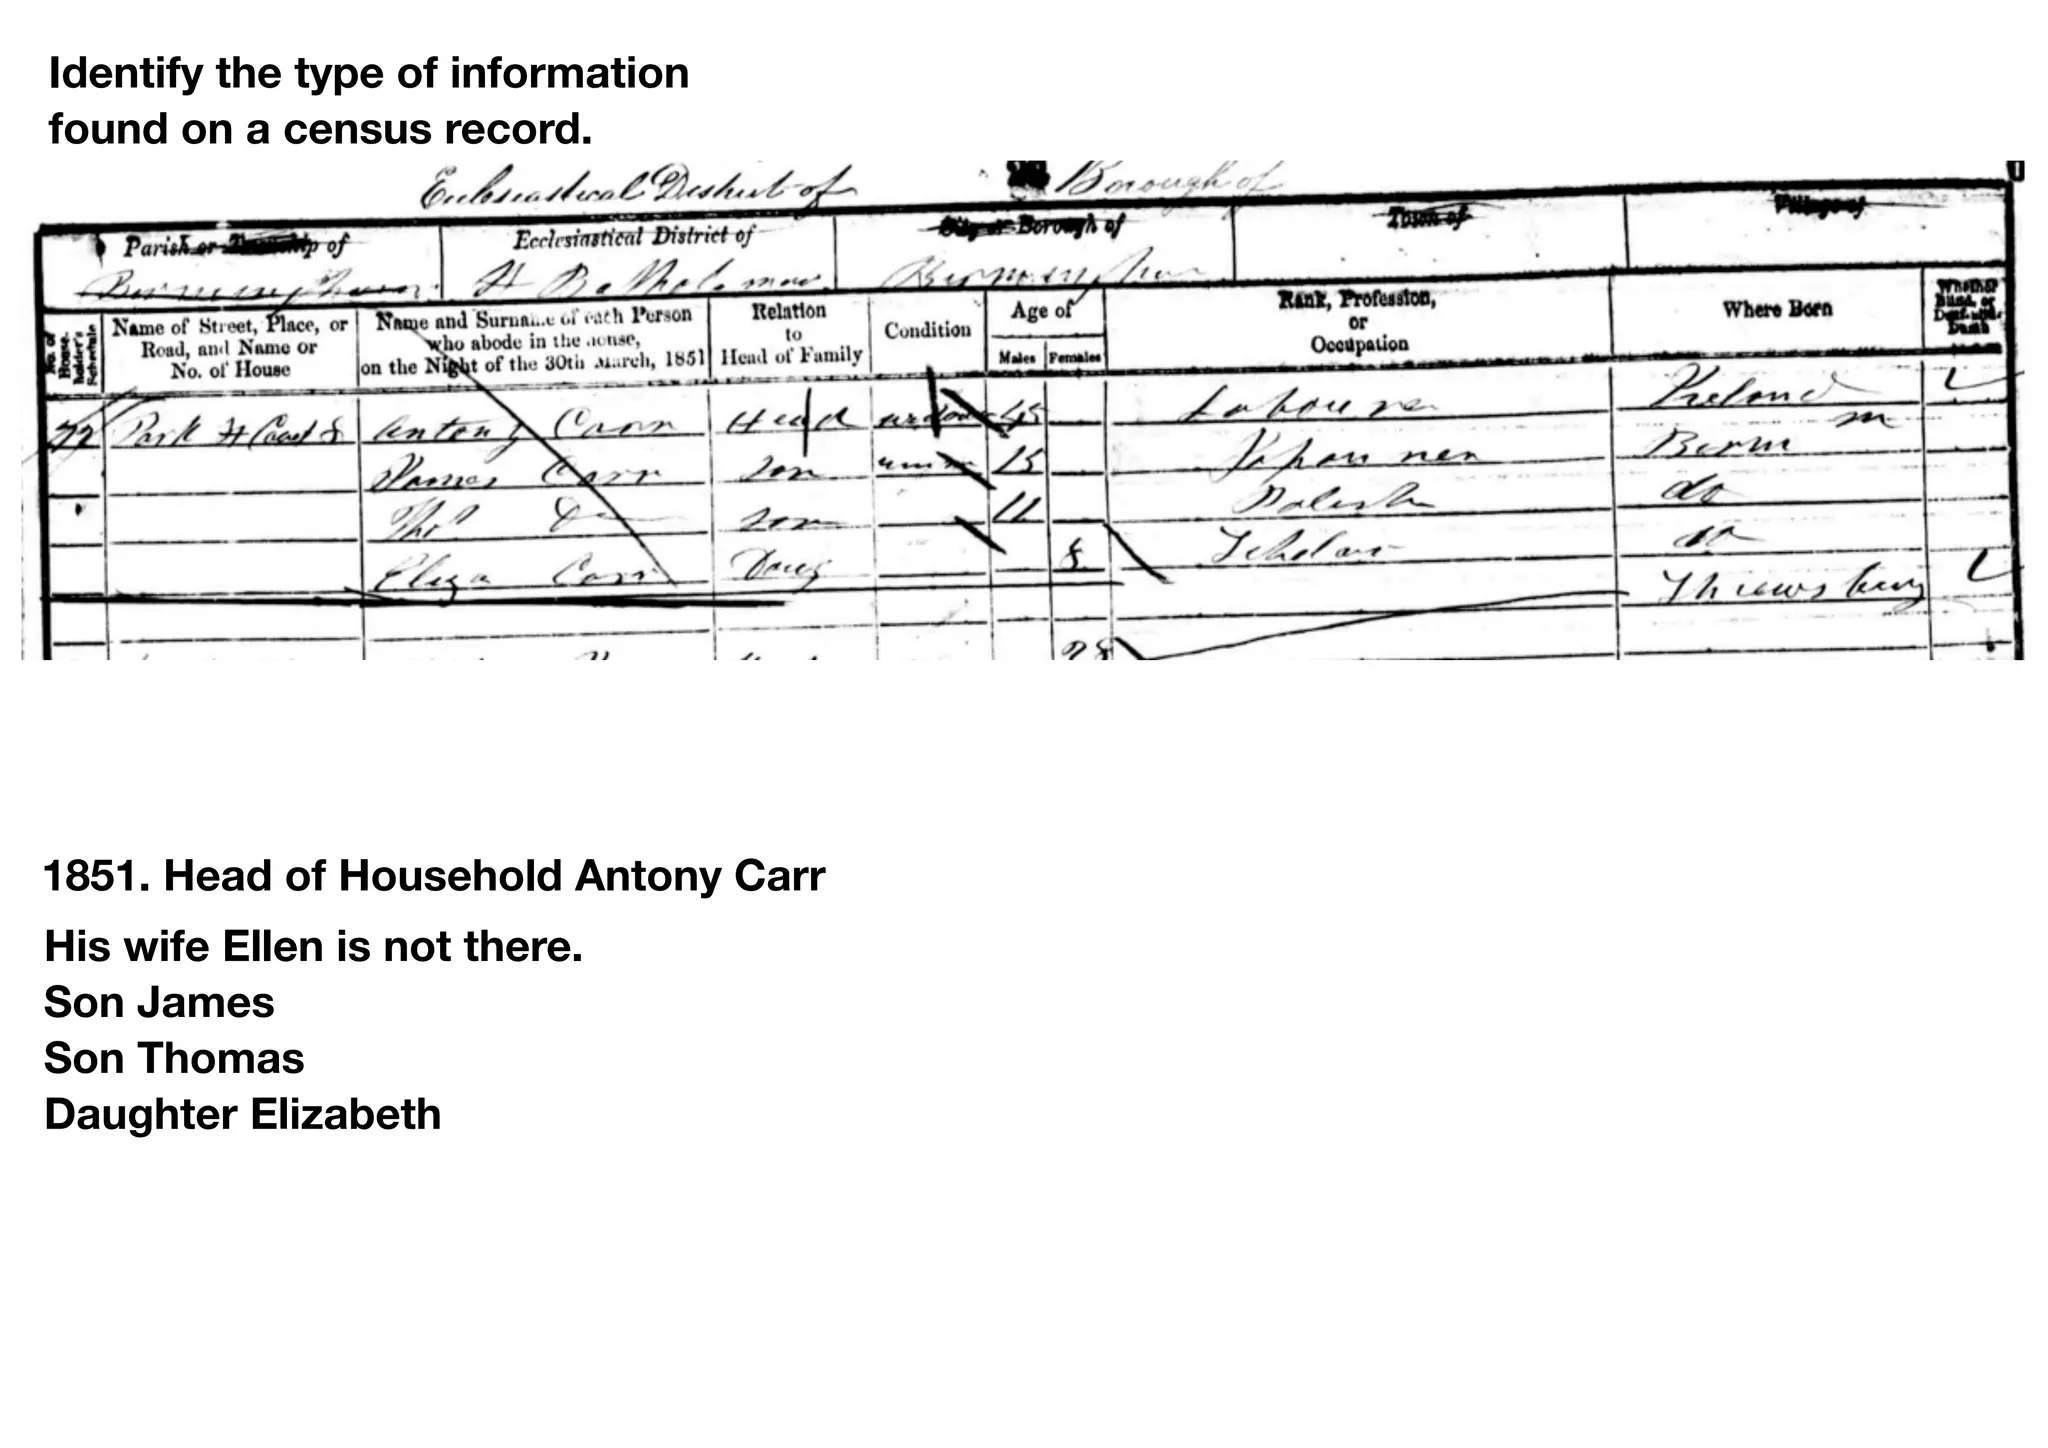 Identify the type of information
found on a census record.
Ecclesiastical District of Borough of
Parish or Township of Ecclesiastical District of City or Borough of Town of Village of
Birmingham St Bartholomew Birmingham
No. of House-holder's Schedule
Name of Street, Place, or Road, and Name or No. of House
Name and Surname of each Person who abode in the house, on the Night of the 30th March, 1851
Relation to Head of Family
Condition
Age of
Males Females
Rank, Profession, or Occupation
Where Born
Whether Blind, or Deaf-and-Dumb
Park St Antony Carr Head 45 Labourer Ireland
James Carr Son 15 Japanner Birm
Thos Do Son 11 do
Eliza Carr Daug 8 Scholar do
Shrewsbury
28
1851. Head of Household Antony Carr
His wife Ellen is not there.
Son James
Son Thomas
Daughter Elizabeth